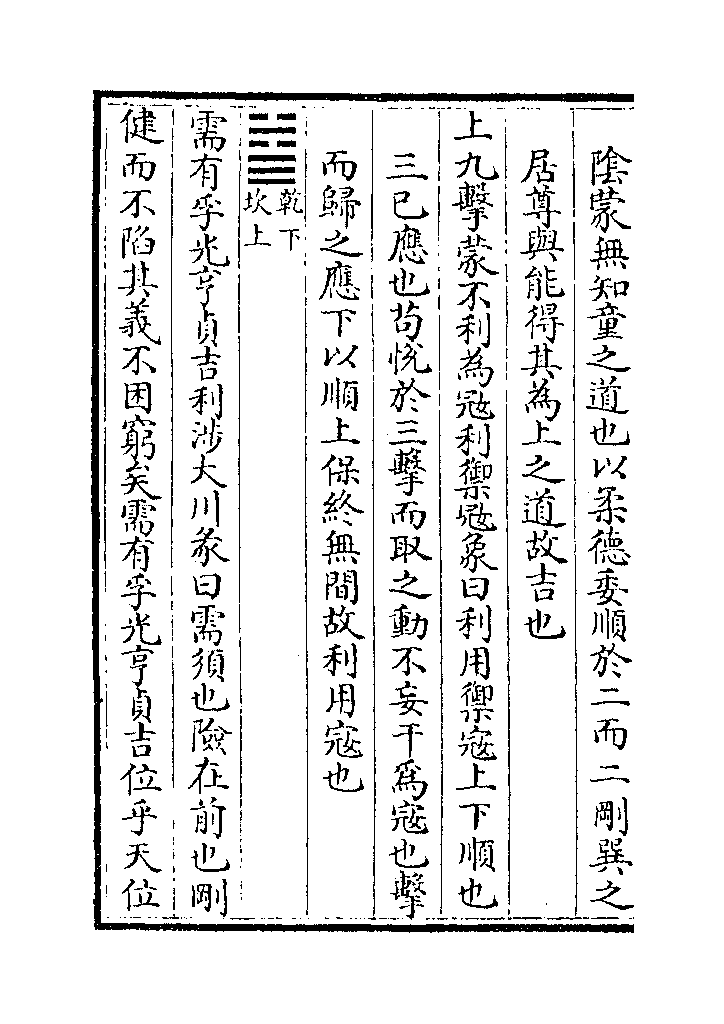 陰蒙無知童之道也以柔德委順於二而二剛巽之
居尊與能得其為上之道故吉也
上九擊蒙不利為冦利禦冦象曰利用禦宼上下順也
三已應也苟恱於三擊而取之動不妄干爲宼也擊
而歸之應下以順上保終無間故利用宼也
乾下
坎上
需有孚光亨貞吉利涉大川彖曰需須也險在前也剛
健而不陷其義不困窮矣需有孚光亨貞吉位乎天位